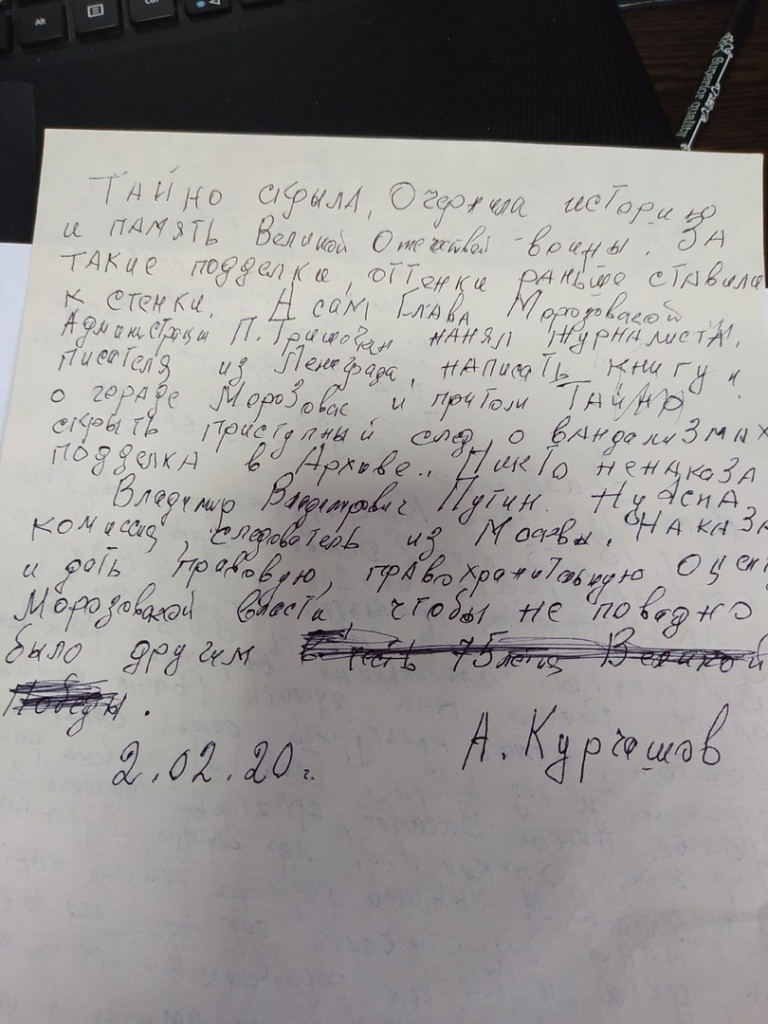 Alt
Ctrl
Superior quality
Тайно скрыла, Очернила историю
и память Великой Отечествой воины. За
такие подделки, оттенки раньше ставили
к стенки. А сам Глава Морозовской
Администрации П. нанял журналиста,
писателя из Ленеграда, написать книгу и
о гораде Морозовск и притом Тайно
скрыть приступный след о вандализмах
подделка в Архиве.. Никто ненаказа
Владимир Владимирович Путин. Нужена
комиссия, следователь из Москвы. Наказа
и дать правовую, правохранительную Оценк
Морозовской власти чтобы не повадно
было другим в честь 75летия Великой
Победы.
2.02.20г. А. Курчашов